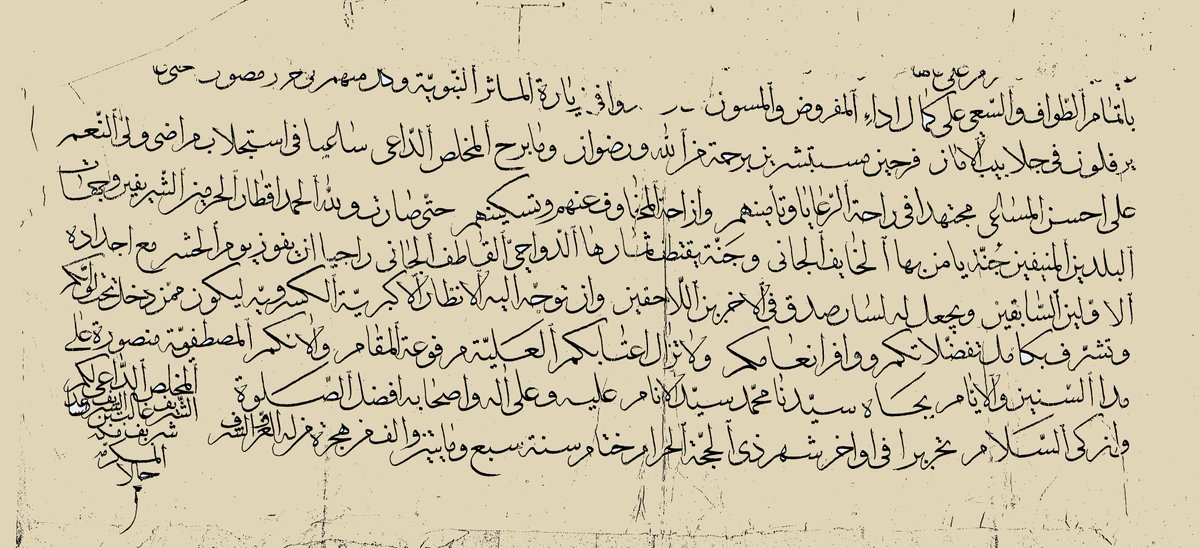 باتمام الطواف والسعي على كمال اداء المفروض والمسنون وافي زيارة المآثر النبوية وكل منهم
يرفلون في جلابيب الامان فرحين مستبشرين برحمة من الله ورضوان وما برح المخلص الداعي ساعيا في استجلاب مراضي ولي النعم
على احسن المساعي مجتهدا في راحة الرعايا وتأمينهم وازاحة المخاوف عنهم وتسكينهم حتى صارت ولله الحمد اقطار الحرمين الشريفين وجهات
البلدين المنيفين جنة يامن بها الخايف الجاني وجنة يقتطف ثمارها الدواحي القاطف الجاني راجيا ان يفوز يوم الحشر مع اجداده
الاولين السابقين ويجعل له لسان صدق في الاخرين اللاحقين وان توجه اليه الانظار الاكبرية الكسروية ليكون ممن دخل تحت لوائكم
وتشرف بكامل تفضلاتكم ووافر انعامكم ولا تزال اعتابكم العلية مرفوعة المقام والانكم المصطفوية منصورة على
مدا السنين والايام بجاه سيدنا محمد سيد الانام عليه وعلى اله واصحابه افضل الصلوة
وازكى السلام تحريرا في اواخر شهر ذي الحجة الحرام ختام سنة سبع ومايتين والف من هجرة من له العز والشرف
المخلص الداعي لكم
الشريف غالب
شريف مكة
المكرمة
حالا